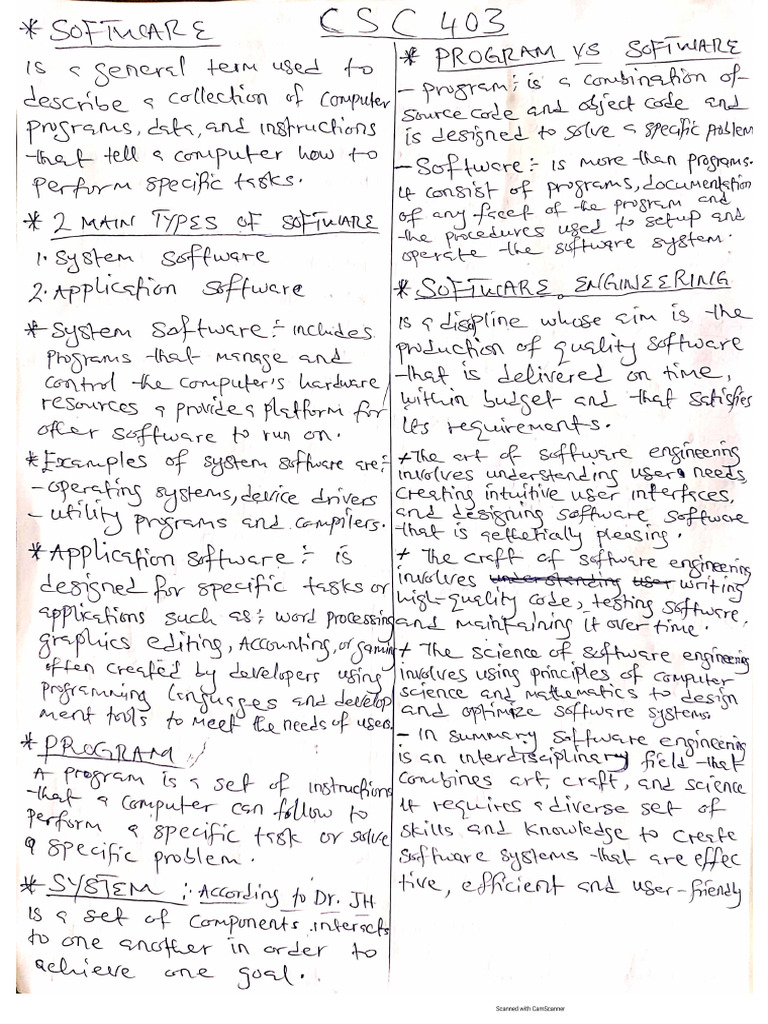 CSC 403
* SOFTWARE
is a general term used to
describe a collection of computer
programs, data, and instructions
that tell a computer how to
perform specific tasks.
* 2 MAIN TYPES OF SOFTWARE
1. System Software
2. Application Software
* System Software :- includes
programs that manage and
control the computer's hardware
resources & provide a platform for
other software to run on.
* Examples of system software are :-
- operating systems, device drivers
- utility programs and compilers.
* Application software :- is
designed for specific tasks or
applications such as : word processing
graphics editing, Accounting, or gaming
often created by developers using
programming languages and develop
ment tools to meet the needs of users
* PROGRAM
A program is a set of instructions
that a computer can follow to
perform a specific task or solve
a specific problem.
* SYSTEM :- According to Dr. JH
is a set of components interacts
to one another in order to
achieve one goal.
* PROGRAM VS SOFTWARE
- program ; is a combination of
source code and object code and
is designed to solve a specific problem
- Software :- is more than programs.
it consist of programs, documentation
of any facet of the program and
the procedures used to setup and
operate the software system.
* SOFTWARE ENGINEERING
is a displine whose aim is the
production of quality software
that is delivered on time,
within budget and that satisfies
its requirements.
+ The art of software engineering
involves understanding user needs,
creating intuitive user interfaces,
and designing software software
that is aethetically pleasing.
+ The craft of software engineering
involves understanding user writing
high-quality code, testing software,
and maintaining it over time.
+ The science of software engineering
involves using principles of computer
science and mathematics to design
and optimize software systems
- In summary software engineering
is an interdisciplinary field that
combines art, craft, and science
it requires a diverse set of
skills and knowledge to create
software systems that are effec
tive, efficient and user-friendly
Scanned with CamScanner